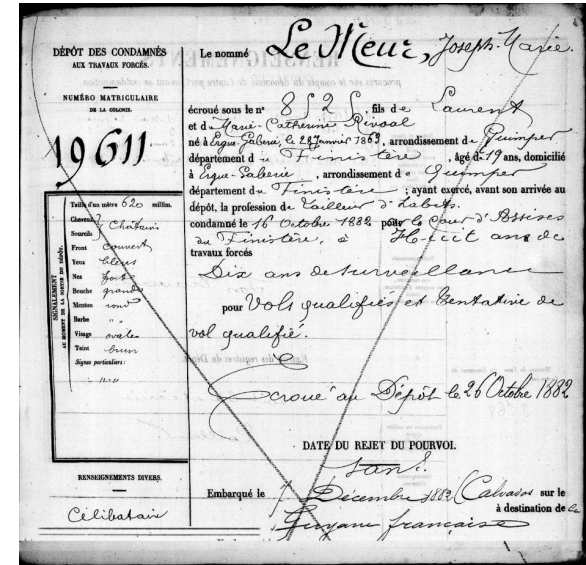 DÉPÔT DES CONDAMNÉS
AUX TRAVAUX FORCÉS.
NUMÉRO MATRICULAIRE
DE LA COLONIE.
19611
Taille d'un mètre 620 millim.
Cheveux
Sourcils } Châtains
Front couvert
Yeux bleus
Nez fort
Bouche grande
Menton rond
Barbe "
Visage ovale
Teint brun
Signes particuliers:
SIGNALEMENT
AU MOMENT DE LA SORTIE DU DÉPÔT.
RENSEIGNEMENTS DIVERS.
Célibataire
Le nommé Le Meur, Joseph-Marie.
écroué sous le n° 8525, fils de Laurent
et de Marie-Catherine Rivoal
né à Ergué-Gabéric, le 28 Janvier 1863, arrondissement de Quimper
département du Finistère, âgé de 19 ans, domicilié
à Ergué-Gabéric, arrondissement de Quimper
département du Finistère; ayant exercé, avant son arrivée au
dépôt, la profession de tailleur d'habits.
condamné le 16 Octobre 1882 par la Cour d'Assises
du Finistère, à Huit ans de
travaux forcés
Dix ans de surveillance
pour Vols qualifiés et tentative de
vol qualifié.
Ecroué au Dépôt le 26 Octobre 1882
DATE DU REJET DU POURVOI.
Embarqué le Décembre 1882 (Calvados sur le
à destination de la
Guyane française